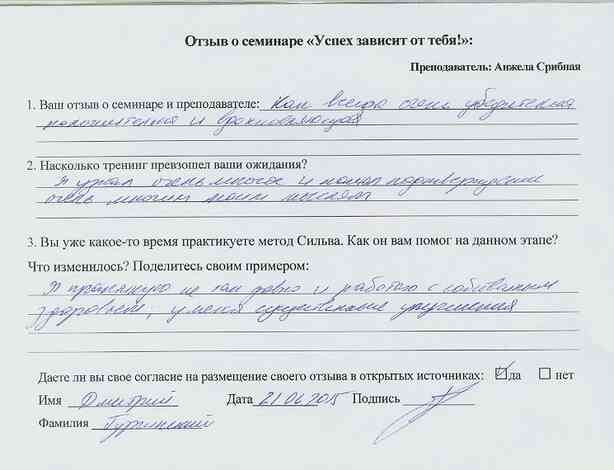 Отзыв о семинаре «Успех зависит от тебя!»:
Преподаватель: Анжела Срибная
1. Ваш отзыв о семинаре и преподавателе: Как всегда очень убедительная
положительная и вдохновляющая
2. Насколько тренинг превзошел ваши ожидания?
Я узнал очень многое и нашел подтверждение
очень многим моим мыслям
3. Вы уже какое-то время практикуете метод Сильва. Как он вам помог на данном этапе?
Что изменилось? Поделитесь своим примером:
Я практикую не так давно и работаю с собственным
здоровьем, у меня существенные улучшения
Даете ли вы свое согласие на размещение своего отзыва в открытых источниках: да нет
Имя Дмитрий Дата 21 06 2015 Подпись
Фамилия